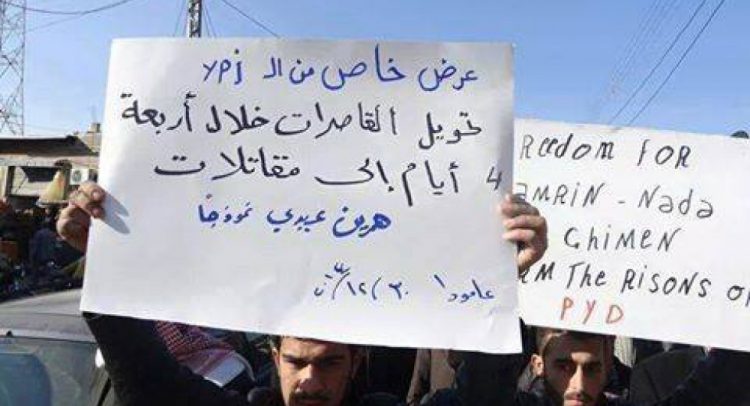 عرض خاص من الـ YPJ
تحويل القاصرات خلال أربعة
4 أيام إلى مقاتلات
هرين عبدي نموذجاً
عامودا
REEDOM FOR
AMRIN - Nada
GHIMEN
The RISONS O
PYD